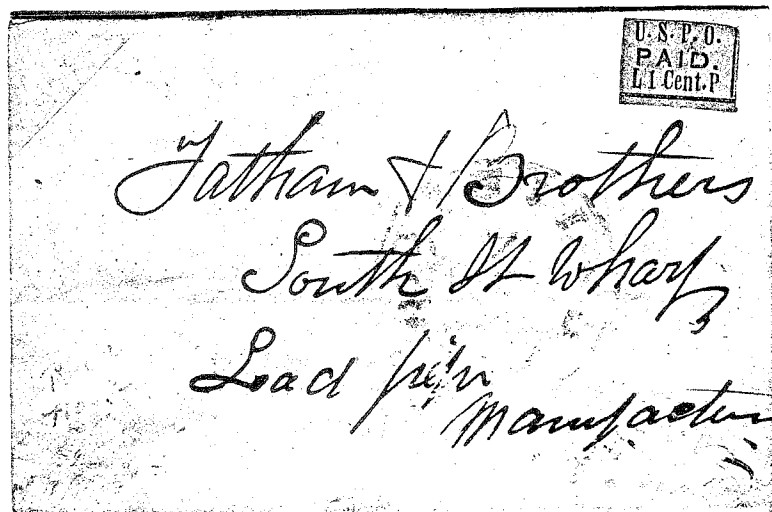 U.S.P.O.
PAID.
L.1 Cent.P
Tatham & Brothers
South St Wharf
Lead pipe
Manufactur